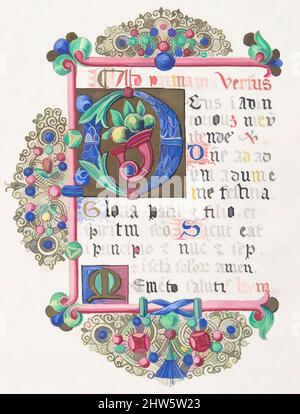 Ad primam Versus
Deus i adiu
toriuz meu
itende
Dne ad ad
iuuadume
me festina
Gloria patri & filio et
spiritui sco Sicut erat
i principio & nuc & sep
i scla sclor amen
Memeto saluti hym
alamy
Image ID: 2HW5W23
www.alamy.com